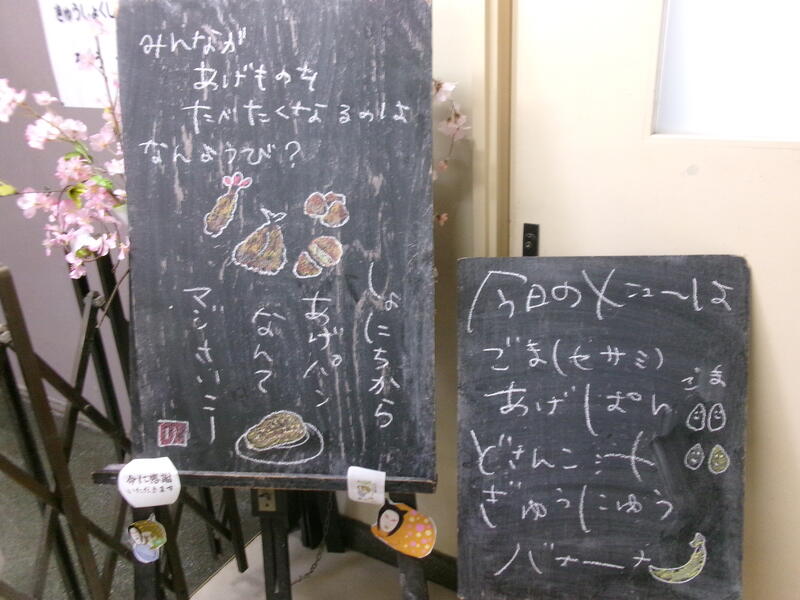 みんなが
あげものを
たべたくなるのは
なんようび?
しょにちから
あげパン
なんて
マジさいこー
命に感謝
いただきます
今日のメニューは
ごま(セサミ)
あげぱん
ごま
どさんこ汁
ぎゅうにゅう
バナーナ